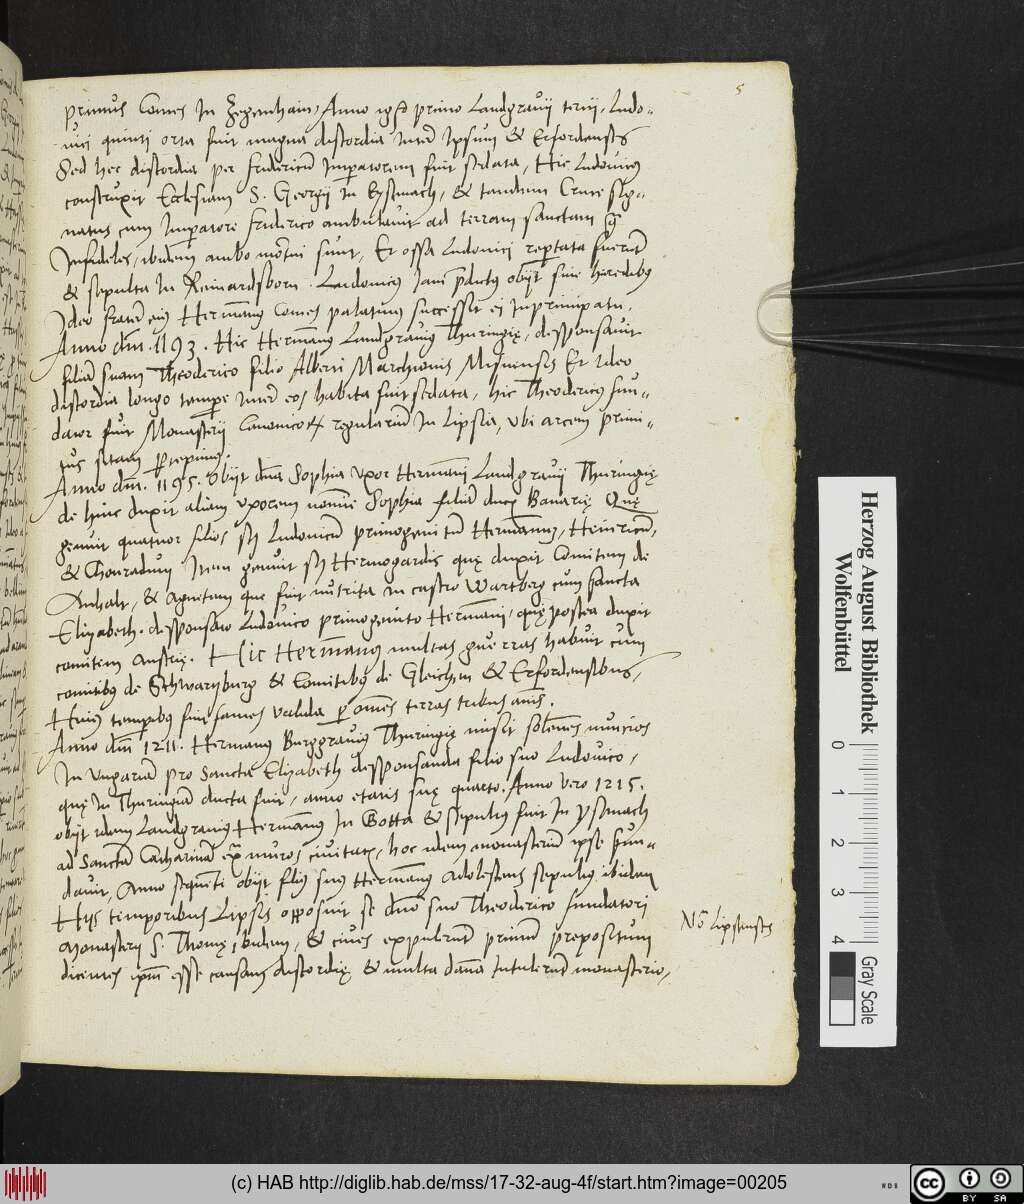 5
primus Comes In Zegenhain, Anno igr̄ primo Landgravij terrij, Ludo-
vici quinti orta fuit magna discordia Inter Ipsum & Erfordenses
Sed hec discordia per fridericū Imperatorem fuit sedata, Hic Ludovicus
construxit Ecclesiam S. Georgij In Eysenach, & tandem Cruce sig-
natus cum Imperatore friderico ambulavit ad terram sanctam
Infideles, ibidem ambo mortui sunt, Et ossa Ludovici reportata fuerūt
& sepulta In Reinardsborn. Ludovicus Jam p̄dictus obijt sine heredibus
Ideo frater eius Hermanus Comes palatinus successit ei In principatu.
Anno dm̄. 1193. Hic Hermanus Landgravius Thuringię, desponsavit
filiā suam Theoderico filio Alberti Marchionis Misnensis Et Ideo
discordia longo tempore Inter eos habita fuit sedata, hic Theodericus fun-
dator fuit Monasterij Canonicoꝝ regulariū In Lipsia, ubi arcem prius
sitam
Anno dm̄. 1195. Obijt dn̄a Sophia uxor Hermanni Landgravij Thuringię
de hinc duxit aliam uxorem nomine Sophia filiā ducis Bavarię Quę
genuit quatuor filios sz Ludovicū primogenitū Hermannū, Heinricū,
& Chonradum Item genuit sz Hermogardis quę duxit Comitem de
Anhalt, & Agnetem que fuit nutrita in castro Wartberg cum sancta
Elizabeth. desponsato Ludovico primogenito Hermanni, quę postea duxit
comitem Austrię. Hic Hermanus multas guerras habuit cum
comitibus de Schwartzburg & Comitibus de Gleichen & Erfordensibus,
Huius temporibus fuit fames valida p omnes terras tribus annis.
Anno dm̄ 1211. Hermanus Burggravius Thuringię misit solēnes nuncios
In Ungariā pro Sancta Elizabeth desponsanda filio suo Ludovico,
quę In Thuringiā ducta fuit, anno etatis suę quarto. Anno vero 1215.
obijt idem Landgravius Hermanus In Gotta & sepultus fuit In ysenach
ad Sanctā Catharinā ex̄ muros civitatis, hoc idem monasteriū ipse fun-
davit, Anno sequenti obijt filius suus Hermanus Adolescens sepultus ibidem
Hijs temporibus Lipsēs opposuit se dn̄o suo Theoderico fundatori
Monasterij S. Thomę ibidem, & cives expulerūt primū prepositum
dicentes ipm̄ esse causam discordię & multa dāna Intulerūt monasterio,
Nō Lipsenses
Herzog August Bibliothek
Wolfenbüttel
0 1 2 3 4
Gray Scale
(c) HAB http://diglib.hab.de/mss/17-32-aug-4f/start.htm?image=00205
WDB
cc BY SA